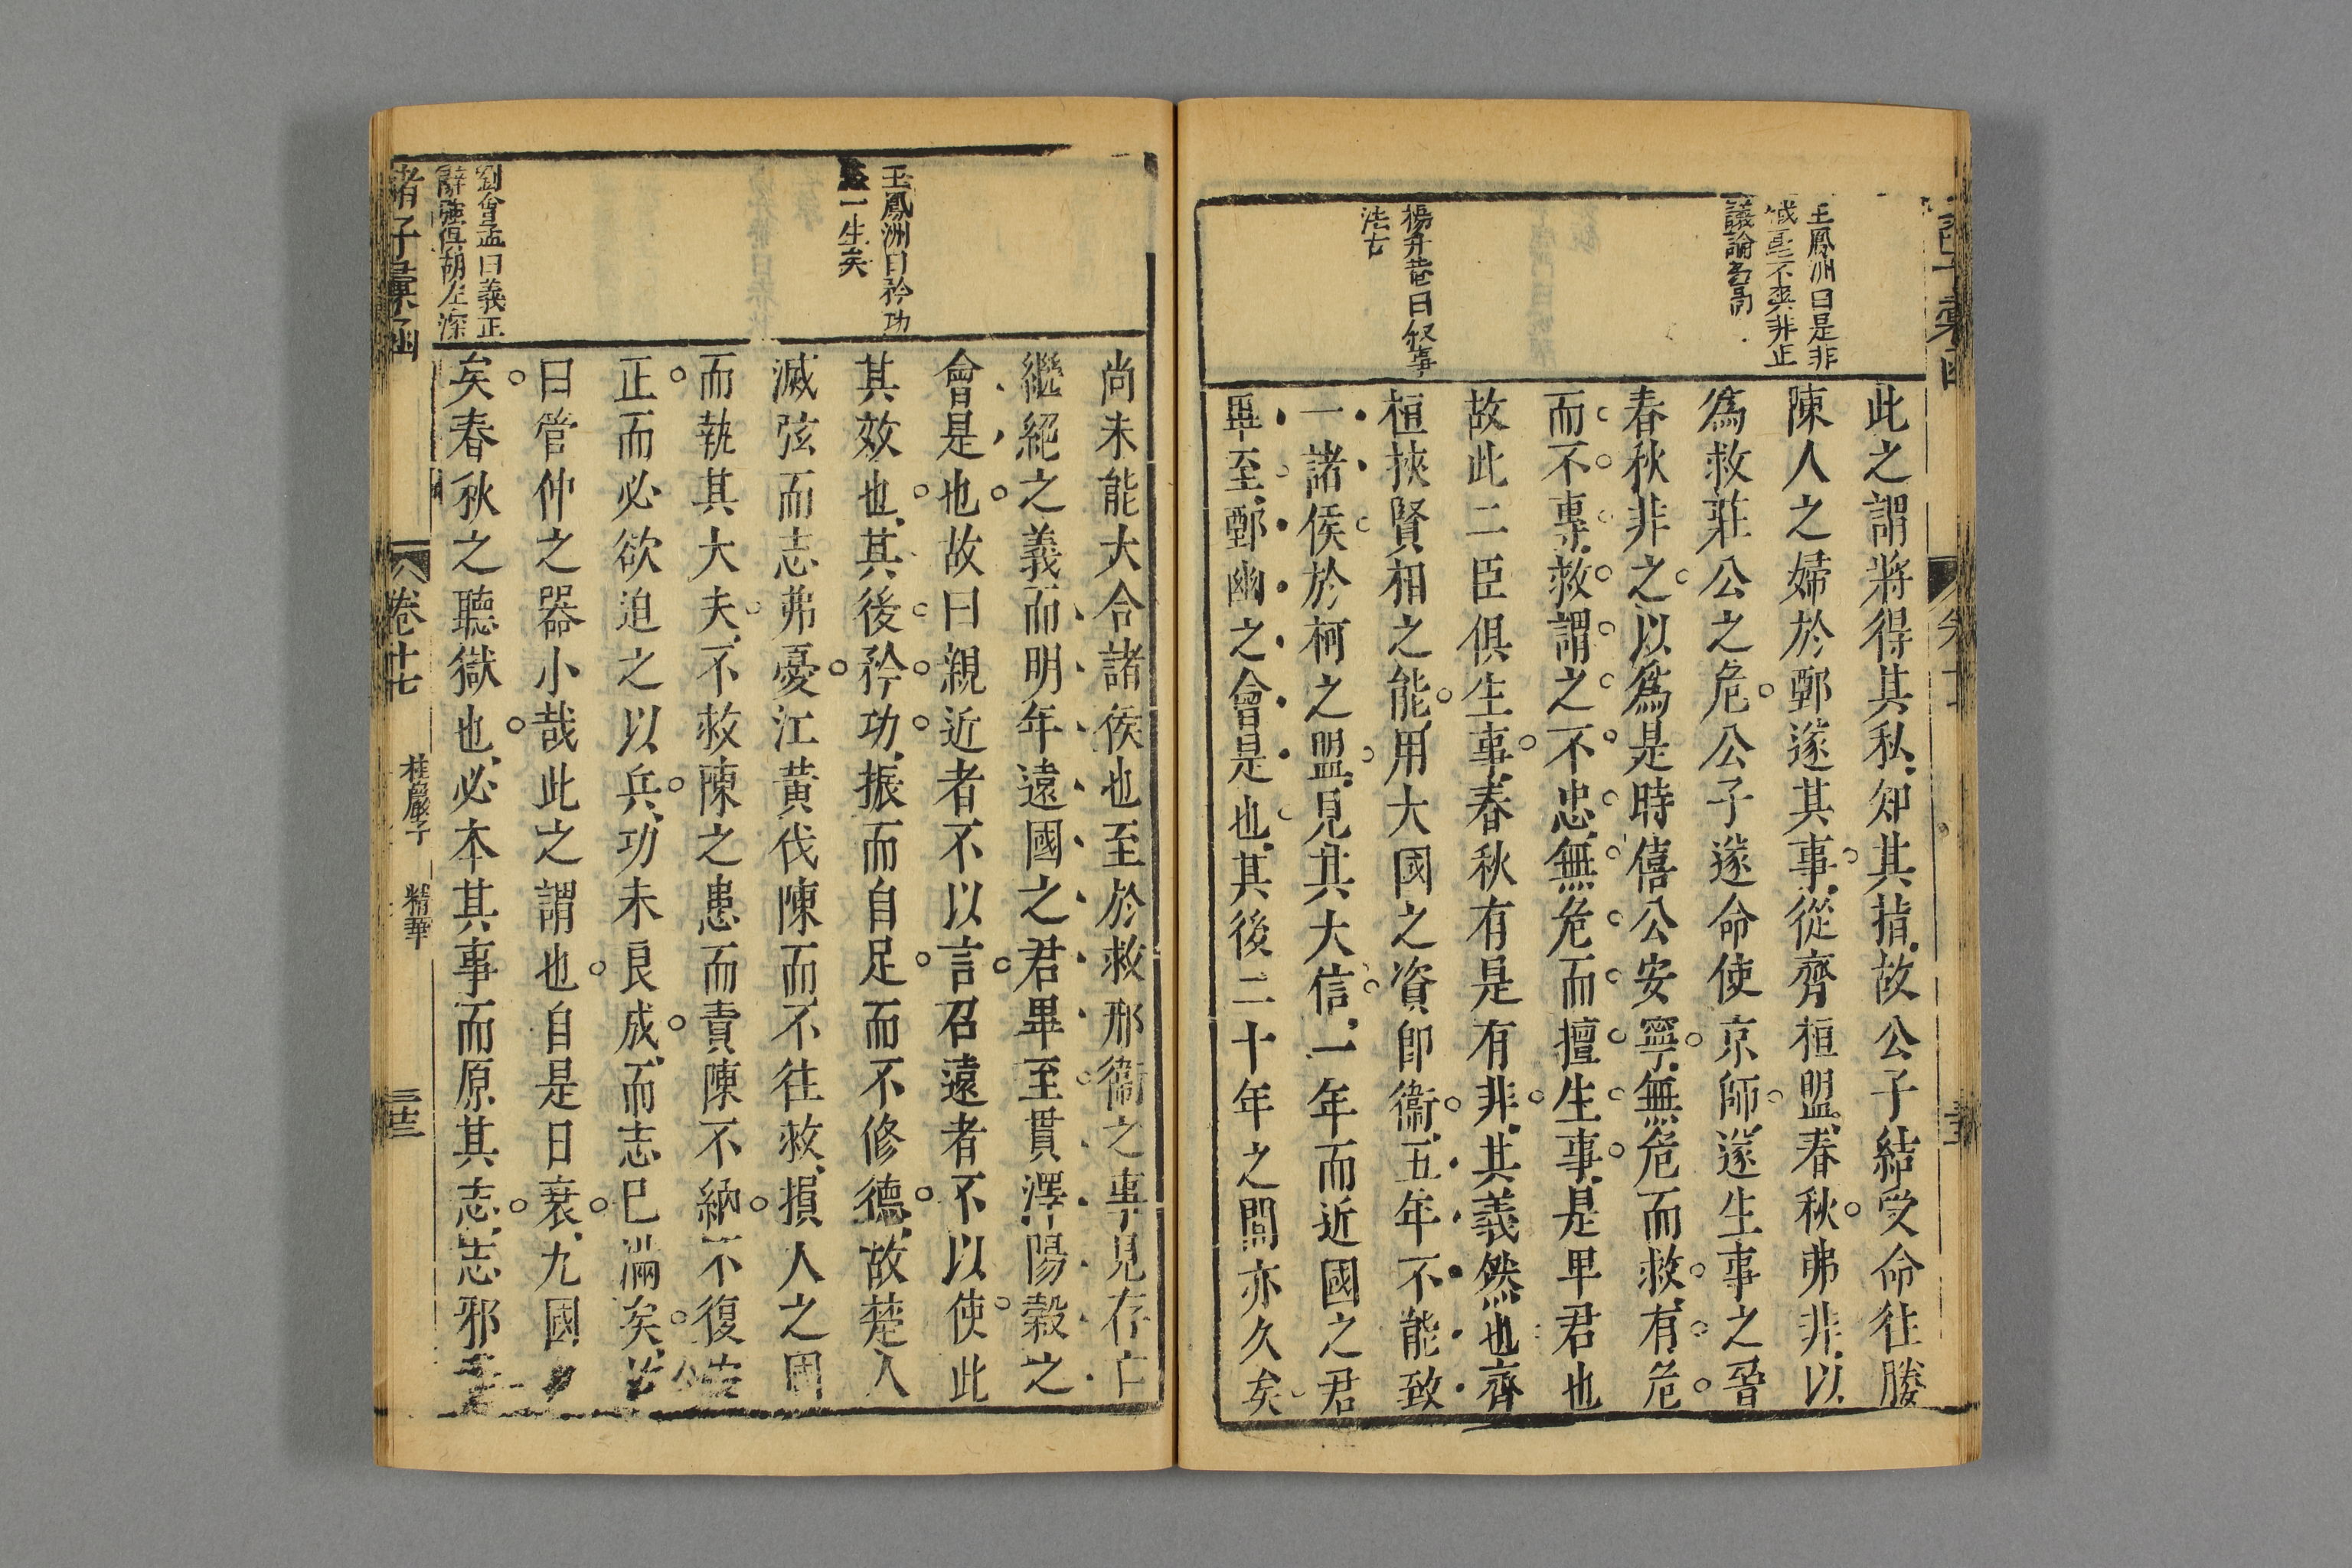 王鳳洲曰是非
議論高
楊升菴曰叙事
法古
此之謂將得其私知其指故公子結受命往媵
陳人之婦於鄄遂其事從齊桓盟春秋弗非以
爲救莊公之危公子遂命使京師遂生事之晉
春秋非之以爲是時僖公安寧無危而救有危
而不專救謂之不忠無危而擅生事是卑君也
故此二臣俱生事春秋有是有非其義然也齊
桓挾賢相之能用大國之資卽衞五年不能致
一諸侯於柯之盟見其大信一年而近國之君
畢至鄄幽之會是也其後二十年之間亦久矣
王鳳洲曰矜功
一生矣
劉會孟曰義正
尚未能大合諸侯也至於救邢衞之事見存亡
繼絕之義而明年遠國之君畢至貫澤陽穀之
會是也故曰親近者不以言召遠者不以使此
其效也其後矜功振而自足而不修德故楚人
滅弦而志弗憂江黃伐陳而不往救損人之國
而執其大夫不救陳之患而責陳不納不復安
正而必欲迫之以兵功未良成而志已滿矣故
曰管仲之器小哉此之謂也自是日衰九國
矣春秋之聽獄也必本其事而原其志志邪
諸子彙函
卷十七
桂巖子
精華